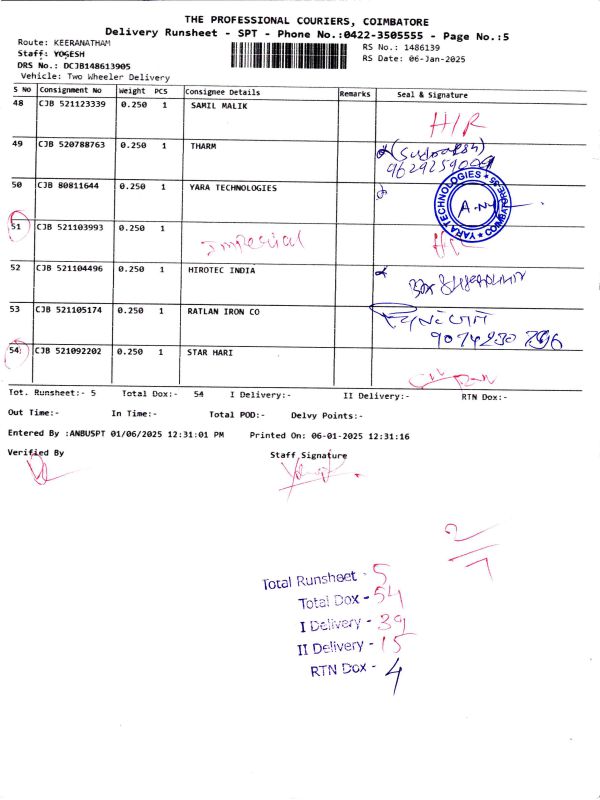 THE PROFESSIONAL COURIERS, COIMBATORE
Delivery Runsheet - SPT - Phone No.:0422-3505555 - Page No.:5
Route: KEERANATHAM RS No.: 1486139
Staff: YOGESH RS Date: 06-Jan-2025
DRS No.: DCJB148613905
Vehicle: Two Wheeler Delivery
S No Consignment No Weight PCS Consignee Details Remarks Seal & Signature
48 CJB 521123339 0.250 1 SAMIL MALIK
H/R
49 CJB 520788763 0.250 1 THARM
9629259009
50 CJB 80811644 0.250 1 YARA TECHNOLOGIES
YARA TECHNOLOGIES COIMBATORE-35
51 CJB 521103993 0.250 1 Imperial
52 CJB 521104496 0.250 1 HIROTEC INDIA
53 CJB 521105174 0.250 1 RATLAN IRON CO
54 CJB 521092202 0.250 1 STAR HARI
Tot. Runsheet:- 5 Total Dox:- 54 I Delivery:- II Delivery:- RTN Dox:-
Out Time:- In Time:- Total POD:- Delvy Points:-
Entered By :ANBUSPT 01/06/2025 12:31:01 PM Printed On: 06-01-2025 12:31:16
Verified By Staff Signature
Total Runsheet - 5
Total Dox - 54
I Delivery - 39
II Delivery - 15
RTN Dox - 4